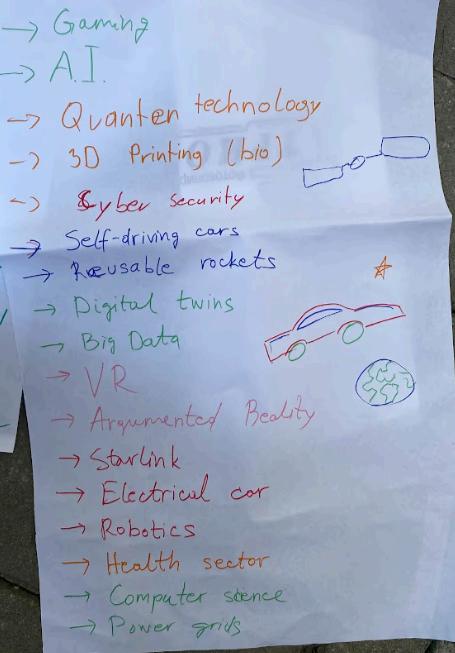 → Gaming
→ A.I.
→ Quanten technology
→ 3D Printing (bio)
→ Cyber security
→ Self-driving cars
→ Reusable rockets
→ Digital twins
→ Big Data
→ VR
→ Argumented Reality
→ Starlink
→ Electrical car
→ Robotics
→ Health sector
→ Computer science
→ Power grids